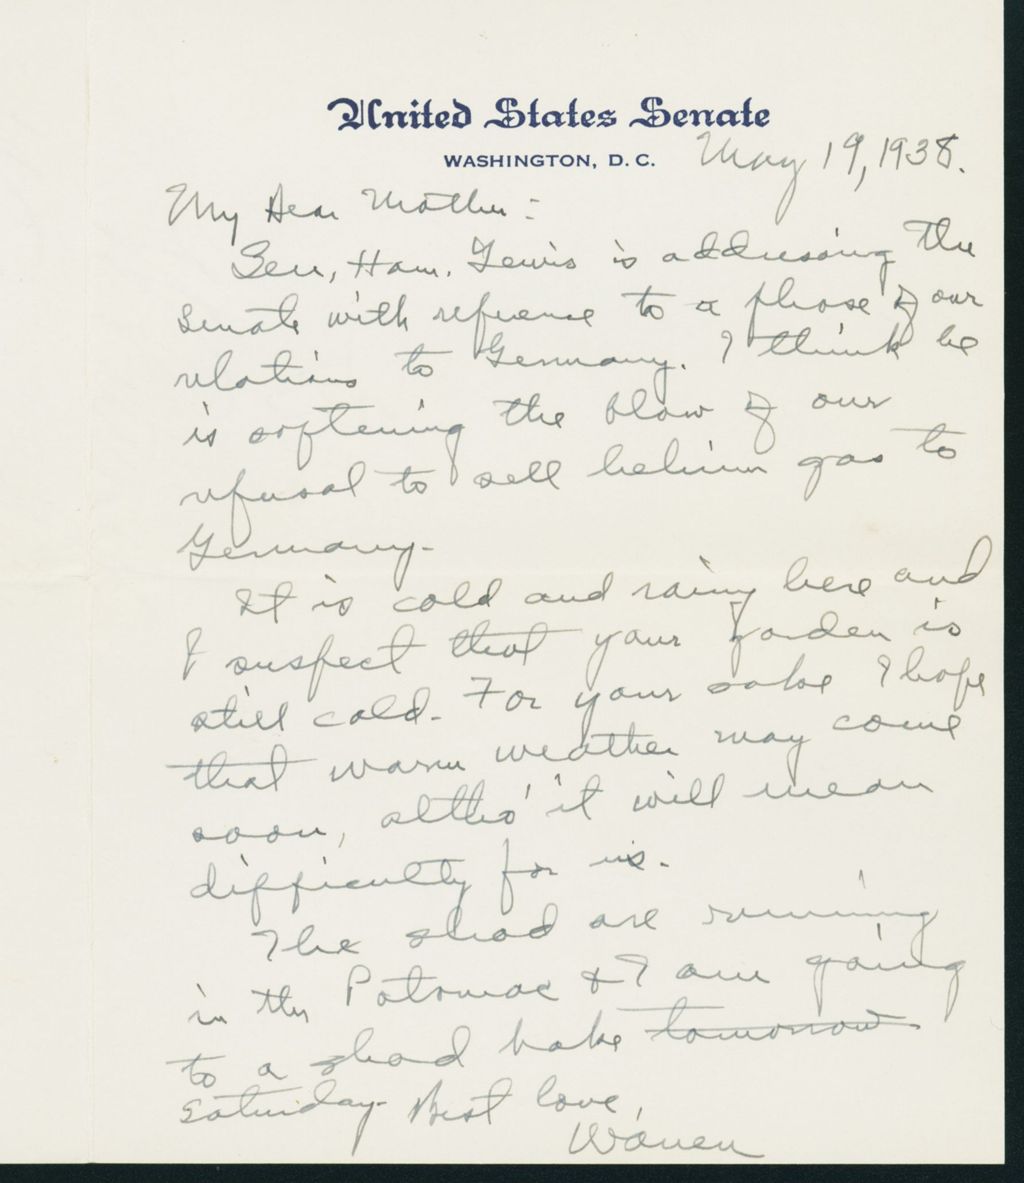 United States Senate
WASHINGTON, D. C.
May 19, 1938.
My Dear Mother:
Sen, Ham. Lewis is addressing the
Senate with reference to a phase of our
relations to Germany. I think he
is softening the blow of our
refusal to sell helium gas to
Germany.
It is cold and rainy here and
I suspect that your garden is
still cold. For your sake I hope
that warm weather may come
soon, altho' it will mean
difficulty for us.
The shad are running
in the Potomac & I am going
to a shad bake tomorrow
Saturday. Best love,
Warren